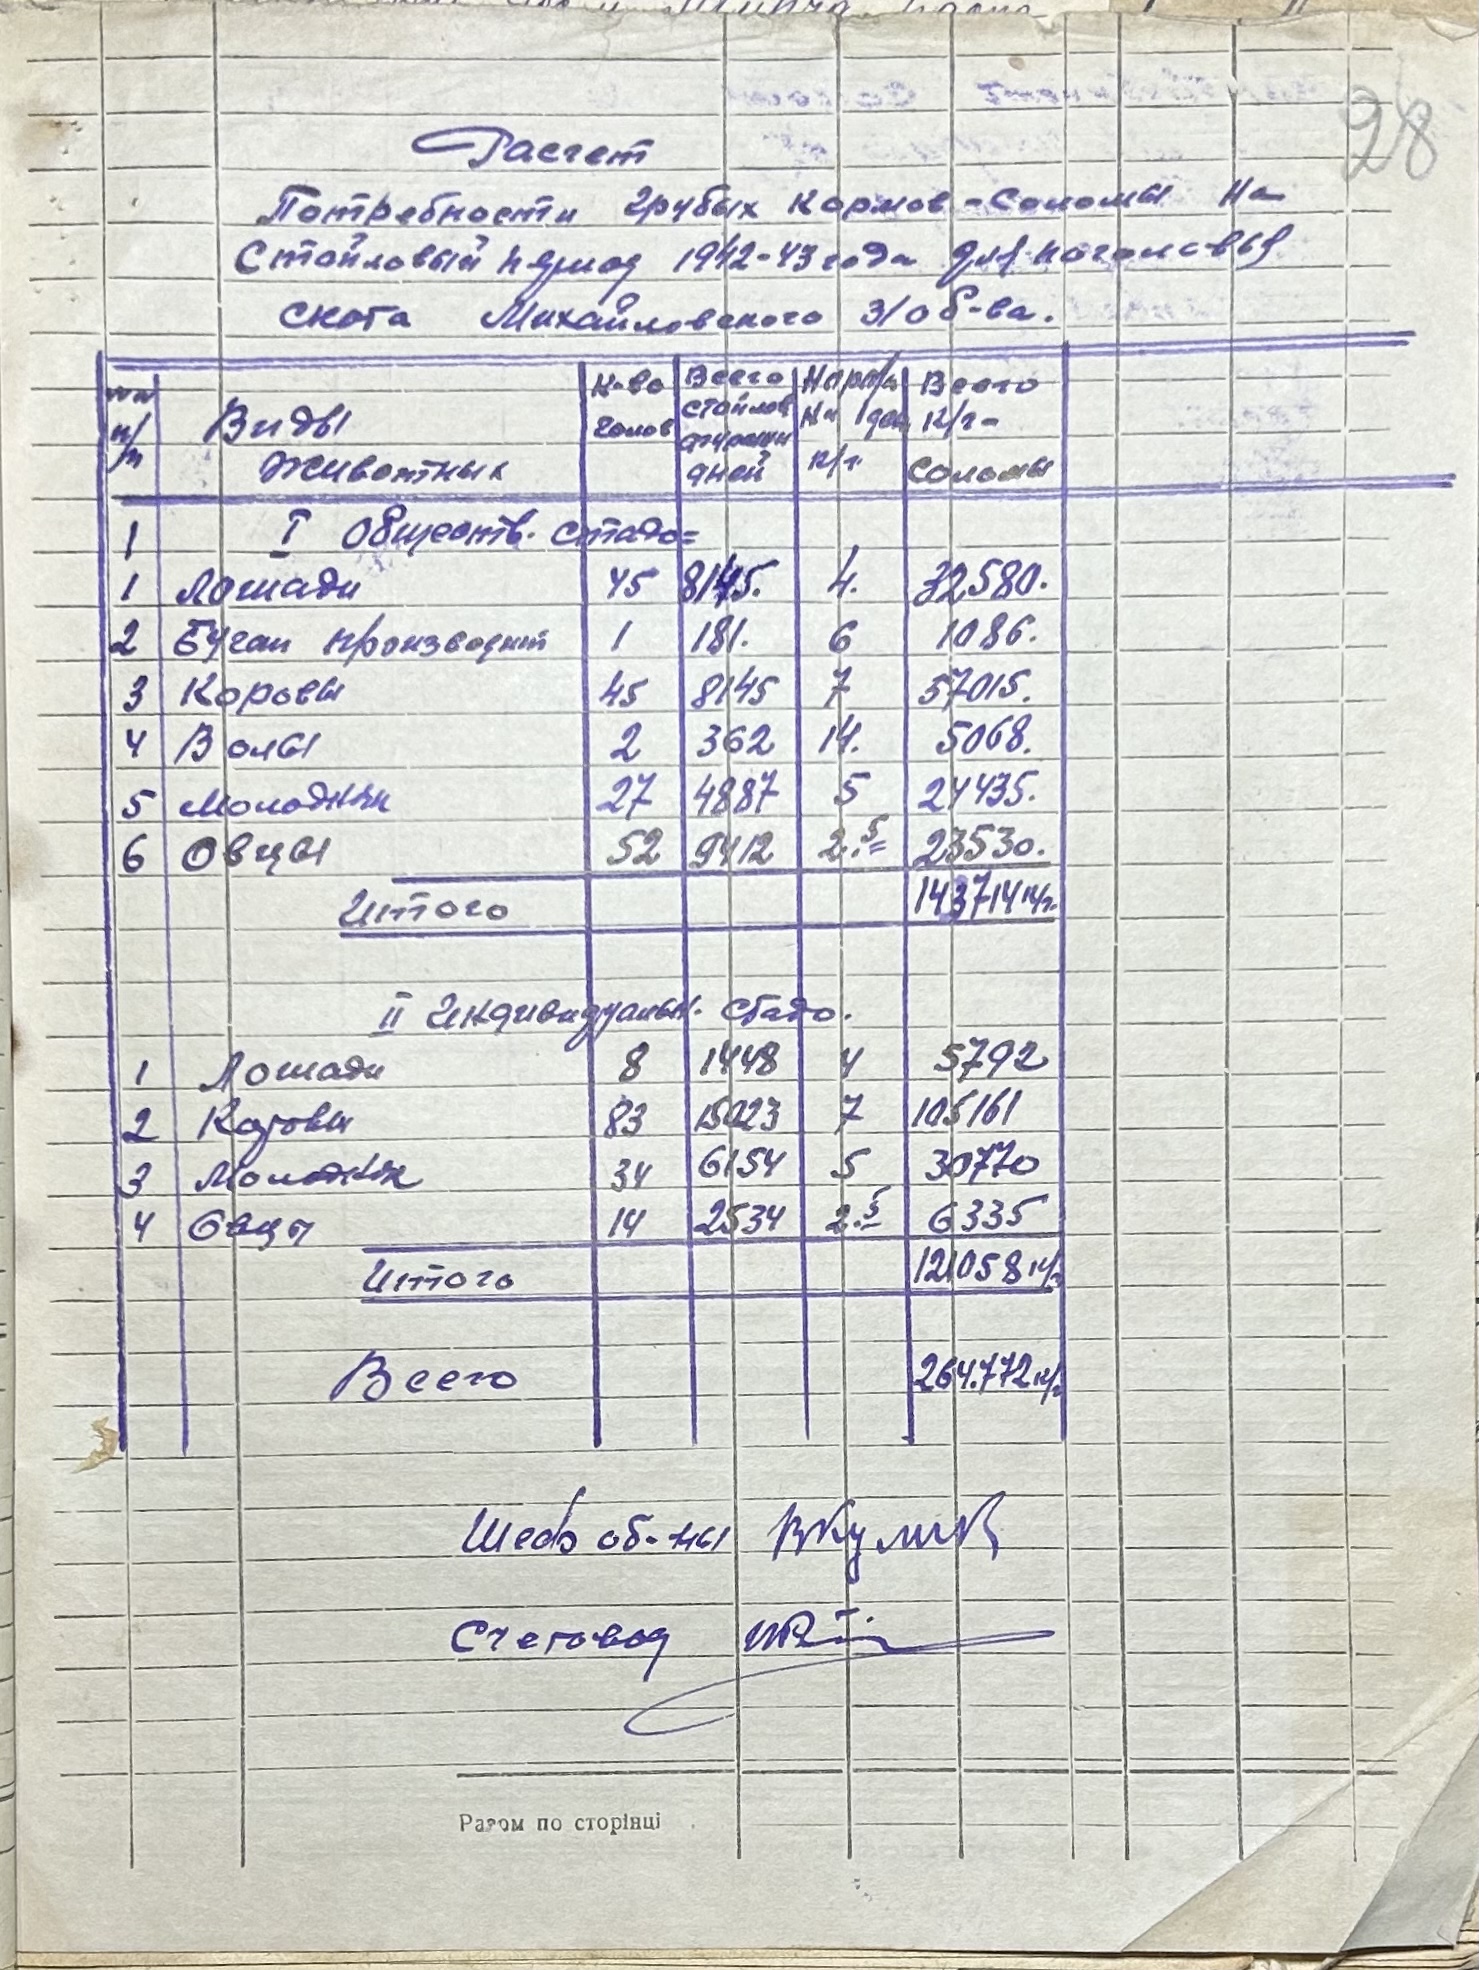 28
Расчет
Потребности грубых кормов - Соломы на
Стойловый период 1942-43 года для поголовья
скота Михайловского З/об-ва.
№№ п/п Виды животных К-во голов Всего стойлов дней Норма на 1 день к/г. Всего к/г- соломы
1 I Обществ. стадо=
1 Лошади 45 8145. 4. 32580.
2 Бугаи производит 1 181. 6 1086.
3 Коровы 45 8145 7 57015.
4 Волы 2 362 14. 5068.
5 Молодняк 27 4887 5 24435.
6 Овцы 52 9412 2.5= 23530.
Итого 143714 к/г.
II Индивидуальн. стадо.
1 Лошади 8 1448 4 5792
2 Коровы 83 15023 7 105161
3 Молодняк 34 6154 5 30770
4 Овцы 14 2534 2.5 6335
Итого 121058 к/г
Всего 264.772 к/г
Шеф об-ны ВКулик
Счетовод
Разом по сторінці